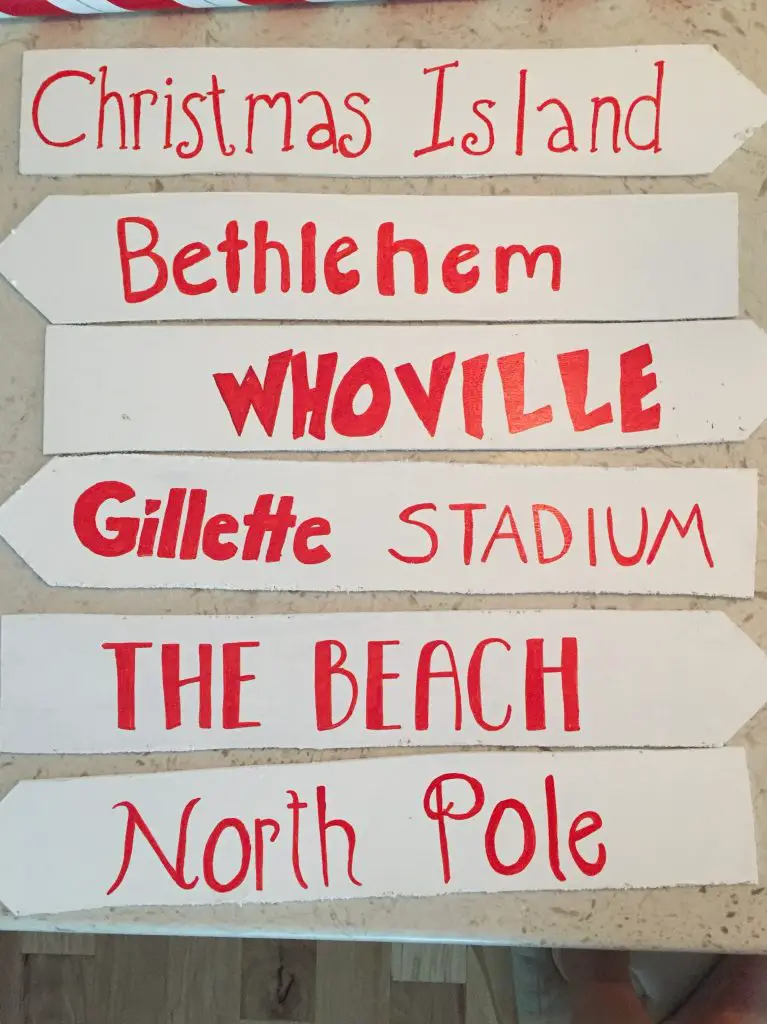 Christmas Island
Bethlehem
WHOVILLE
Gillette STADIUM
THE BEACH
North Pole